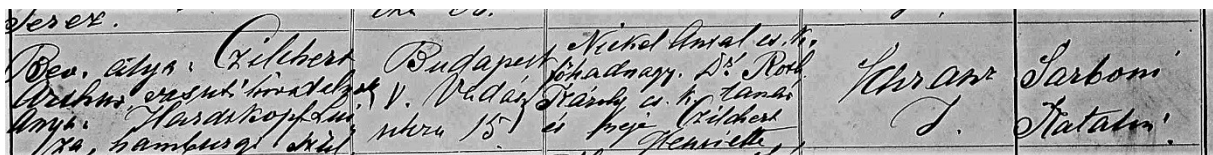 Terez.
Bev. atya: Czilchert
Arthur vasuti
Anya: Hardtkopf Lui
za, hamburgi szül.
Budapest
V. Vadász
utcza 15
Nickel Antal cs. k.
főhadnagy. Dr Roth
Károly cs. k. tanár
és neje Czilchert
Henriette
Schranz
J.
Sarboni
Katalin